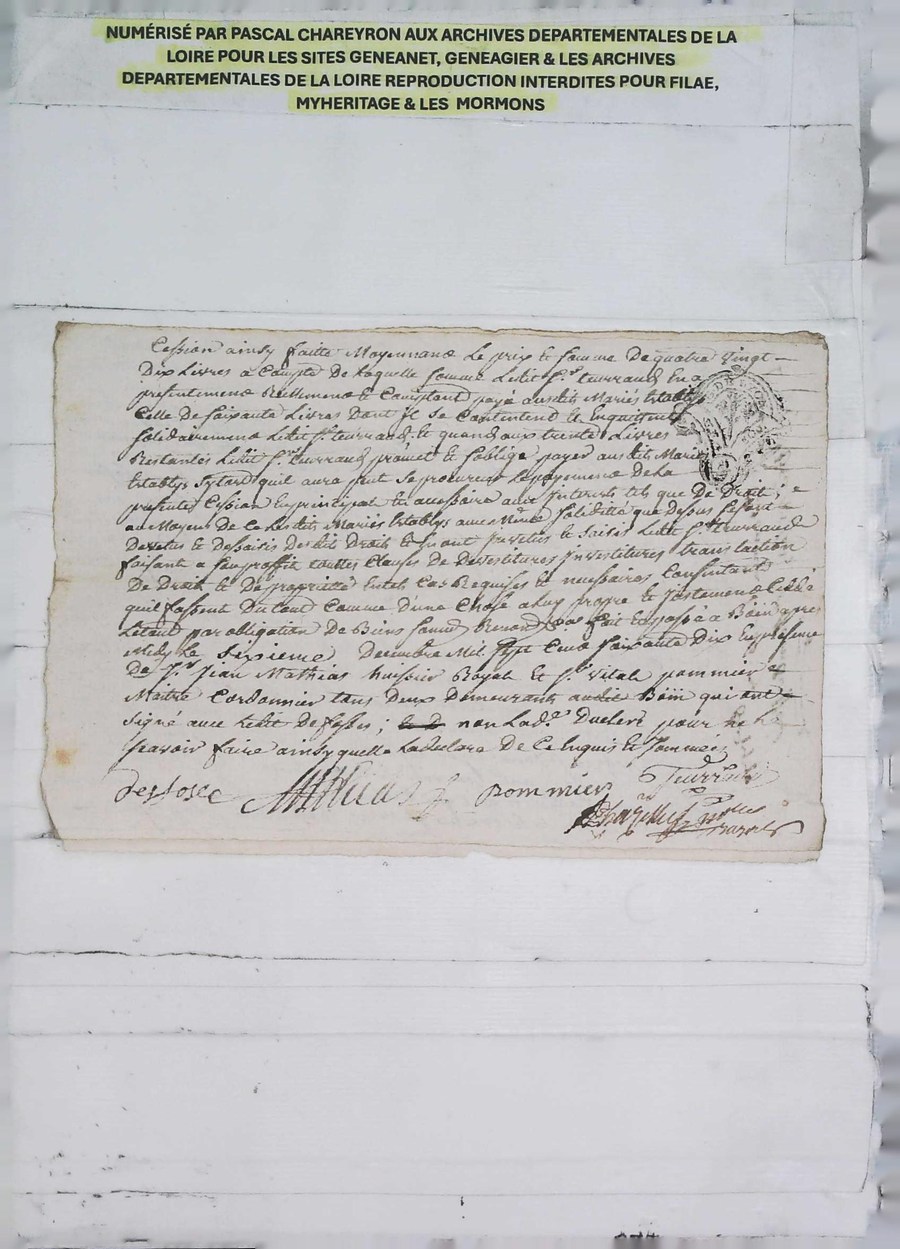 NUMÉRISÉ PAR PASCAL CHAREYRON AUX ARCHIVES DEPARTEMENTALES DE LA
LOIRE POUR LES SITES GENEANET, GENEAGIER & LES ARCHIVES
DEPARTEMENTALES DE LA LOIRE REPRODUCTION INTERDITES POUR FILAE,
MYHERITAGE & LES MORMONS
Cession ainsy faitte Moyennant Le prix et somme De quatre vingt
Dix Livres a Compte De Laquelle somme Ledit Sr. turraud En a
presentement Réellement et Comptant payé ausdits Mariés Establys
Celle De soixante Livres Dont Ils se Contentent et En quittent
solidairement Ledit Sr. turraud, et quand aux trente Livres
Restantes Ledit Sr. turraud promet et s'oblige payer ausdits Mariés
Establys sytard quil aura peut se procurer Le payement De La
presente Cession En principal et accessoire aux Interests tels que De Droit;
au Moyen De Ce Lesdits Mariés Establys avec Meme soliditté que Dessus se sont
Devetus et Dessaisis Desdit Droits et En ont Invetus et saisis Ledit Sr. turraud
faisant a son proffit touttes Clauses De Devestitures Investitures translaction
De Droit et De propriette En tel Cas Requises et necessaires Consentant
quil fassent Du tout Comme D'une Chose a Luy propre et Justement Ceddé
Letout par obligation De Biens soumis Renonc. &a. fait et passé a Bëin apres
Midy Le sixieme Decembre Mil Sept Cens soixante Dix En presence
De Sr. Jean Mathias huissier Royal et Sr. Vital pommier
Maitre Cordonnier tous Deux Demeurants audit Bëin qui ont
signé avec Ledit De fosse; non Lad. Duclerc pour ne le
sçavoir faire ainsy quelle La Declaré De Ce Enquis et sommée
Desfosse Mathias pommier Turraud